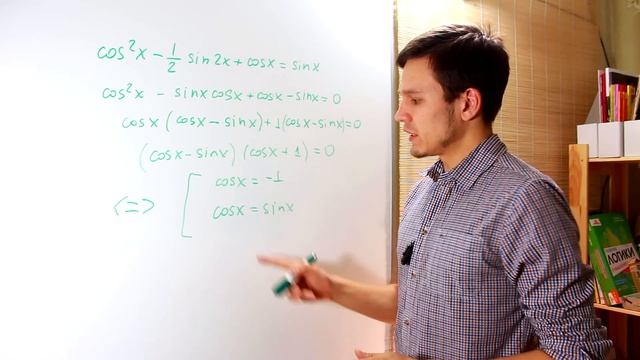 cos²x - 1/2 sin2x + cosx = sinx
cos²x - sinx cosx + cosx - sinx = 0
cosx (cosx - sinx) + 1(cosx - sinx) = 0
(cosx - sinx) (cosx + 1) = 0
cosx = -1
<=> [ cosx = sinx
ЛОГИКИ